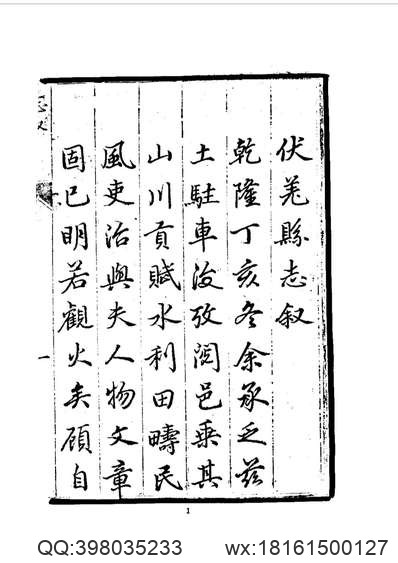 伏羌縣志叙
乾隆丁亥冬余承乏茲
土駐車後攷閱邑乗其
山川貢賦水利田疇民
風吏治與夫人物文章
固已明若觀火矣顧自
一
1
QQ:398035233 wx:18161500127